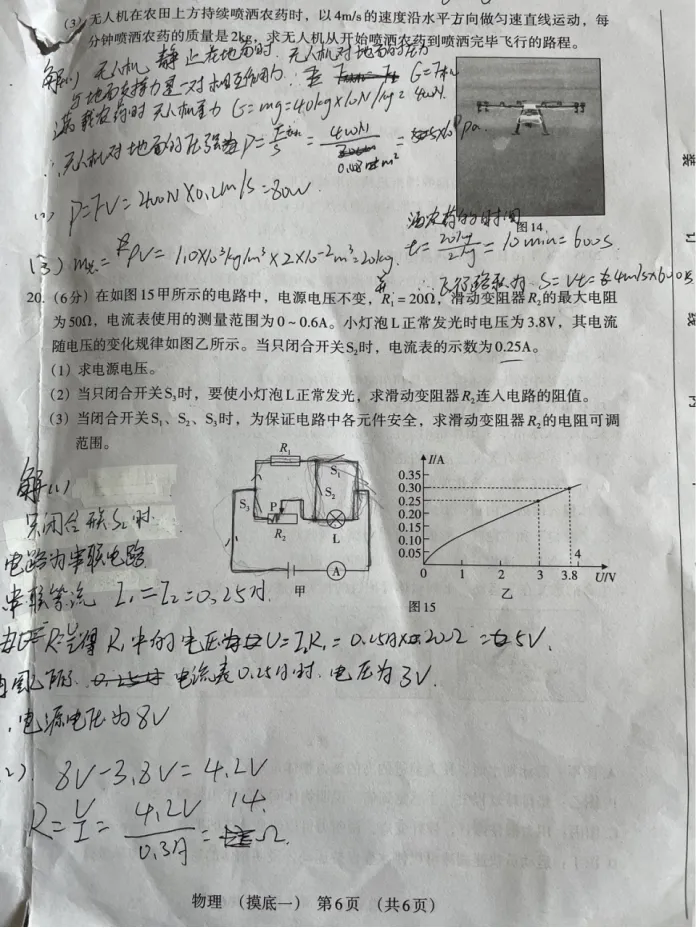 (3) 无人机在农田上方持续喷洒农药时，以4m/s的速度沿水平方向做匀速直线运动，每
分钟喷洒农药的质量是2kg，求无人机从开始喷洒农药到喷洒完毕飞行的路程。
解(1) 无人机静止在地面时，无人机对地面的压力
与地面支持力是一对相互作用力
满载农药时无人机重力 G=mg=40kg×10N/kg=400N
∴无人机对地面的压强
P=FV=400N×0.2m/s=80W
图14
洒农药的时间
t=20kg/2kg=10min=600s
(3) m=PV=1.0×10³kg/m³×2×10⁻²m³=20kg
20. (6分) 在如图15甲所示的电路中，电源电压不变，R₁=20Ω，滑动变阻器R₂的最大电阻
为50Ω，电流表使用的测量范围为0~0.6A。小灯泡L正常发光时电压为3.8V，其电流
随电压的变化规律如图乙所示。当只闭合开关S₂时，电流表的示数为0.25A。
(1) 求电源电压。
(2) 当只闭合开关S₃时，要使小灯泡L正常发光，求滑动变阻器R₂连入电路的阻值。
(3) 当闭合开关S₁、S₂、S₃时，为保证电路中各元件安全，求滑动变阻器R₂的电阻可调
范围。
解(1)
只闭合开关S₂时
电路为串联电路
串联等流 I₁=I₂=0.25A
R₁ S₁ S₂ S₃ P R₂ L A
甲
I/A
0.35
0.30
0.25
0.20
0.15
0.10
0.05
0 1 2 3 3.8 4 U/V
乙
图15
得R₁中的电压为U=I₁R₁=0.25A×20Ω=5V
电流表0.25A时，电压为3V
电源电压为8V
2) 8V-3.8V=4.2V
R=U/I=4.2V/0.3A=14Ω
物理 (摸底一) 第6页 (共6页)